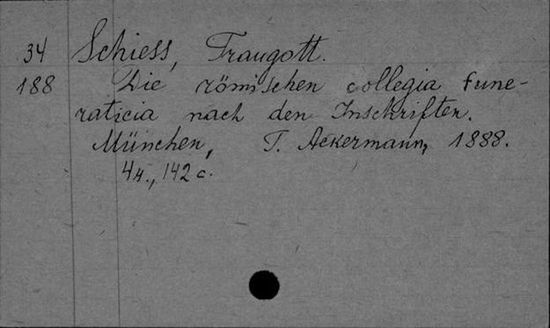 34 Schiess, Traugott.
188 Die römischen collegia fune-
raticia nach den Inschriften.
München, T. Ackermann, 1888.
4н., 142 с.